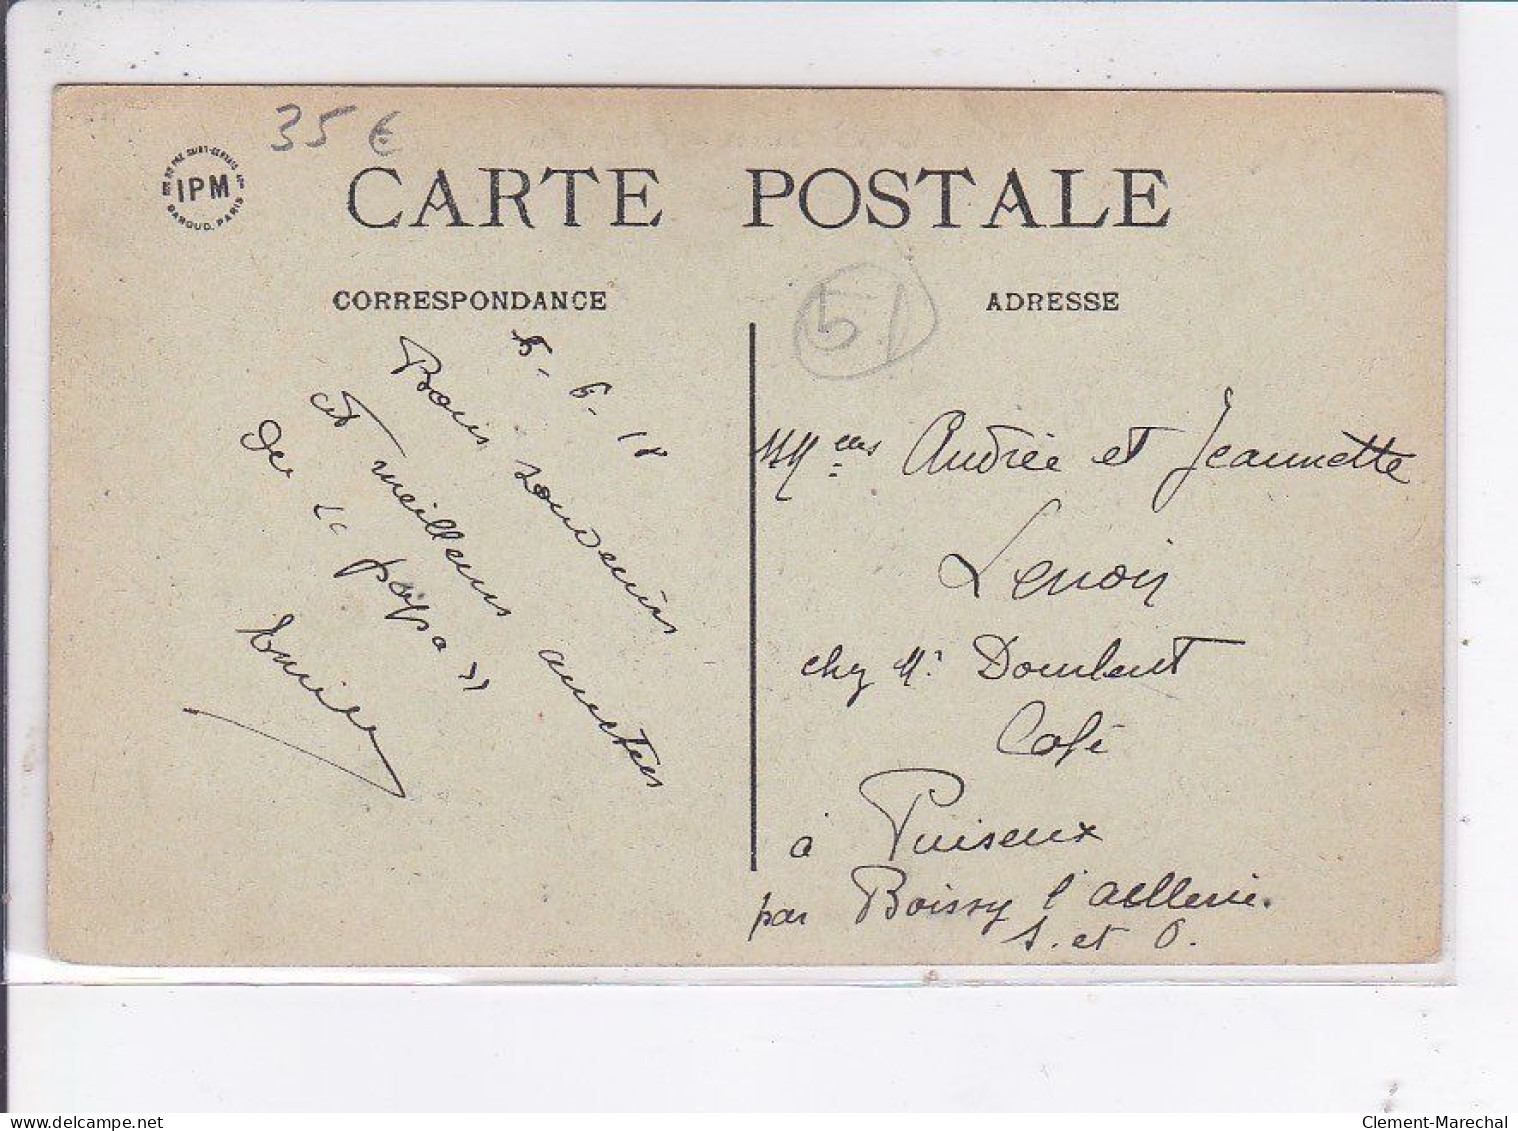 35 €
IPM
BAROUD, PARIS
CARTE POSTALE
CORRESPONDANCE
ADRESSE
51
5-6-18
Bons souvenirs
et meilleurs amitiés
du "papa"
MMelles Andrée et Jeannette
Lenoir
chez Mr
Café
à Puiseux
par Boissy l'aillerie.
S. et O.
delcampe.net
Clement-Marechal